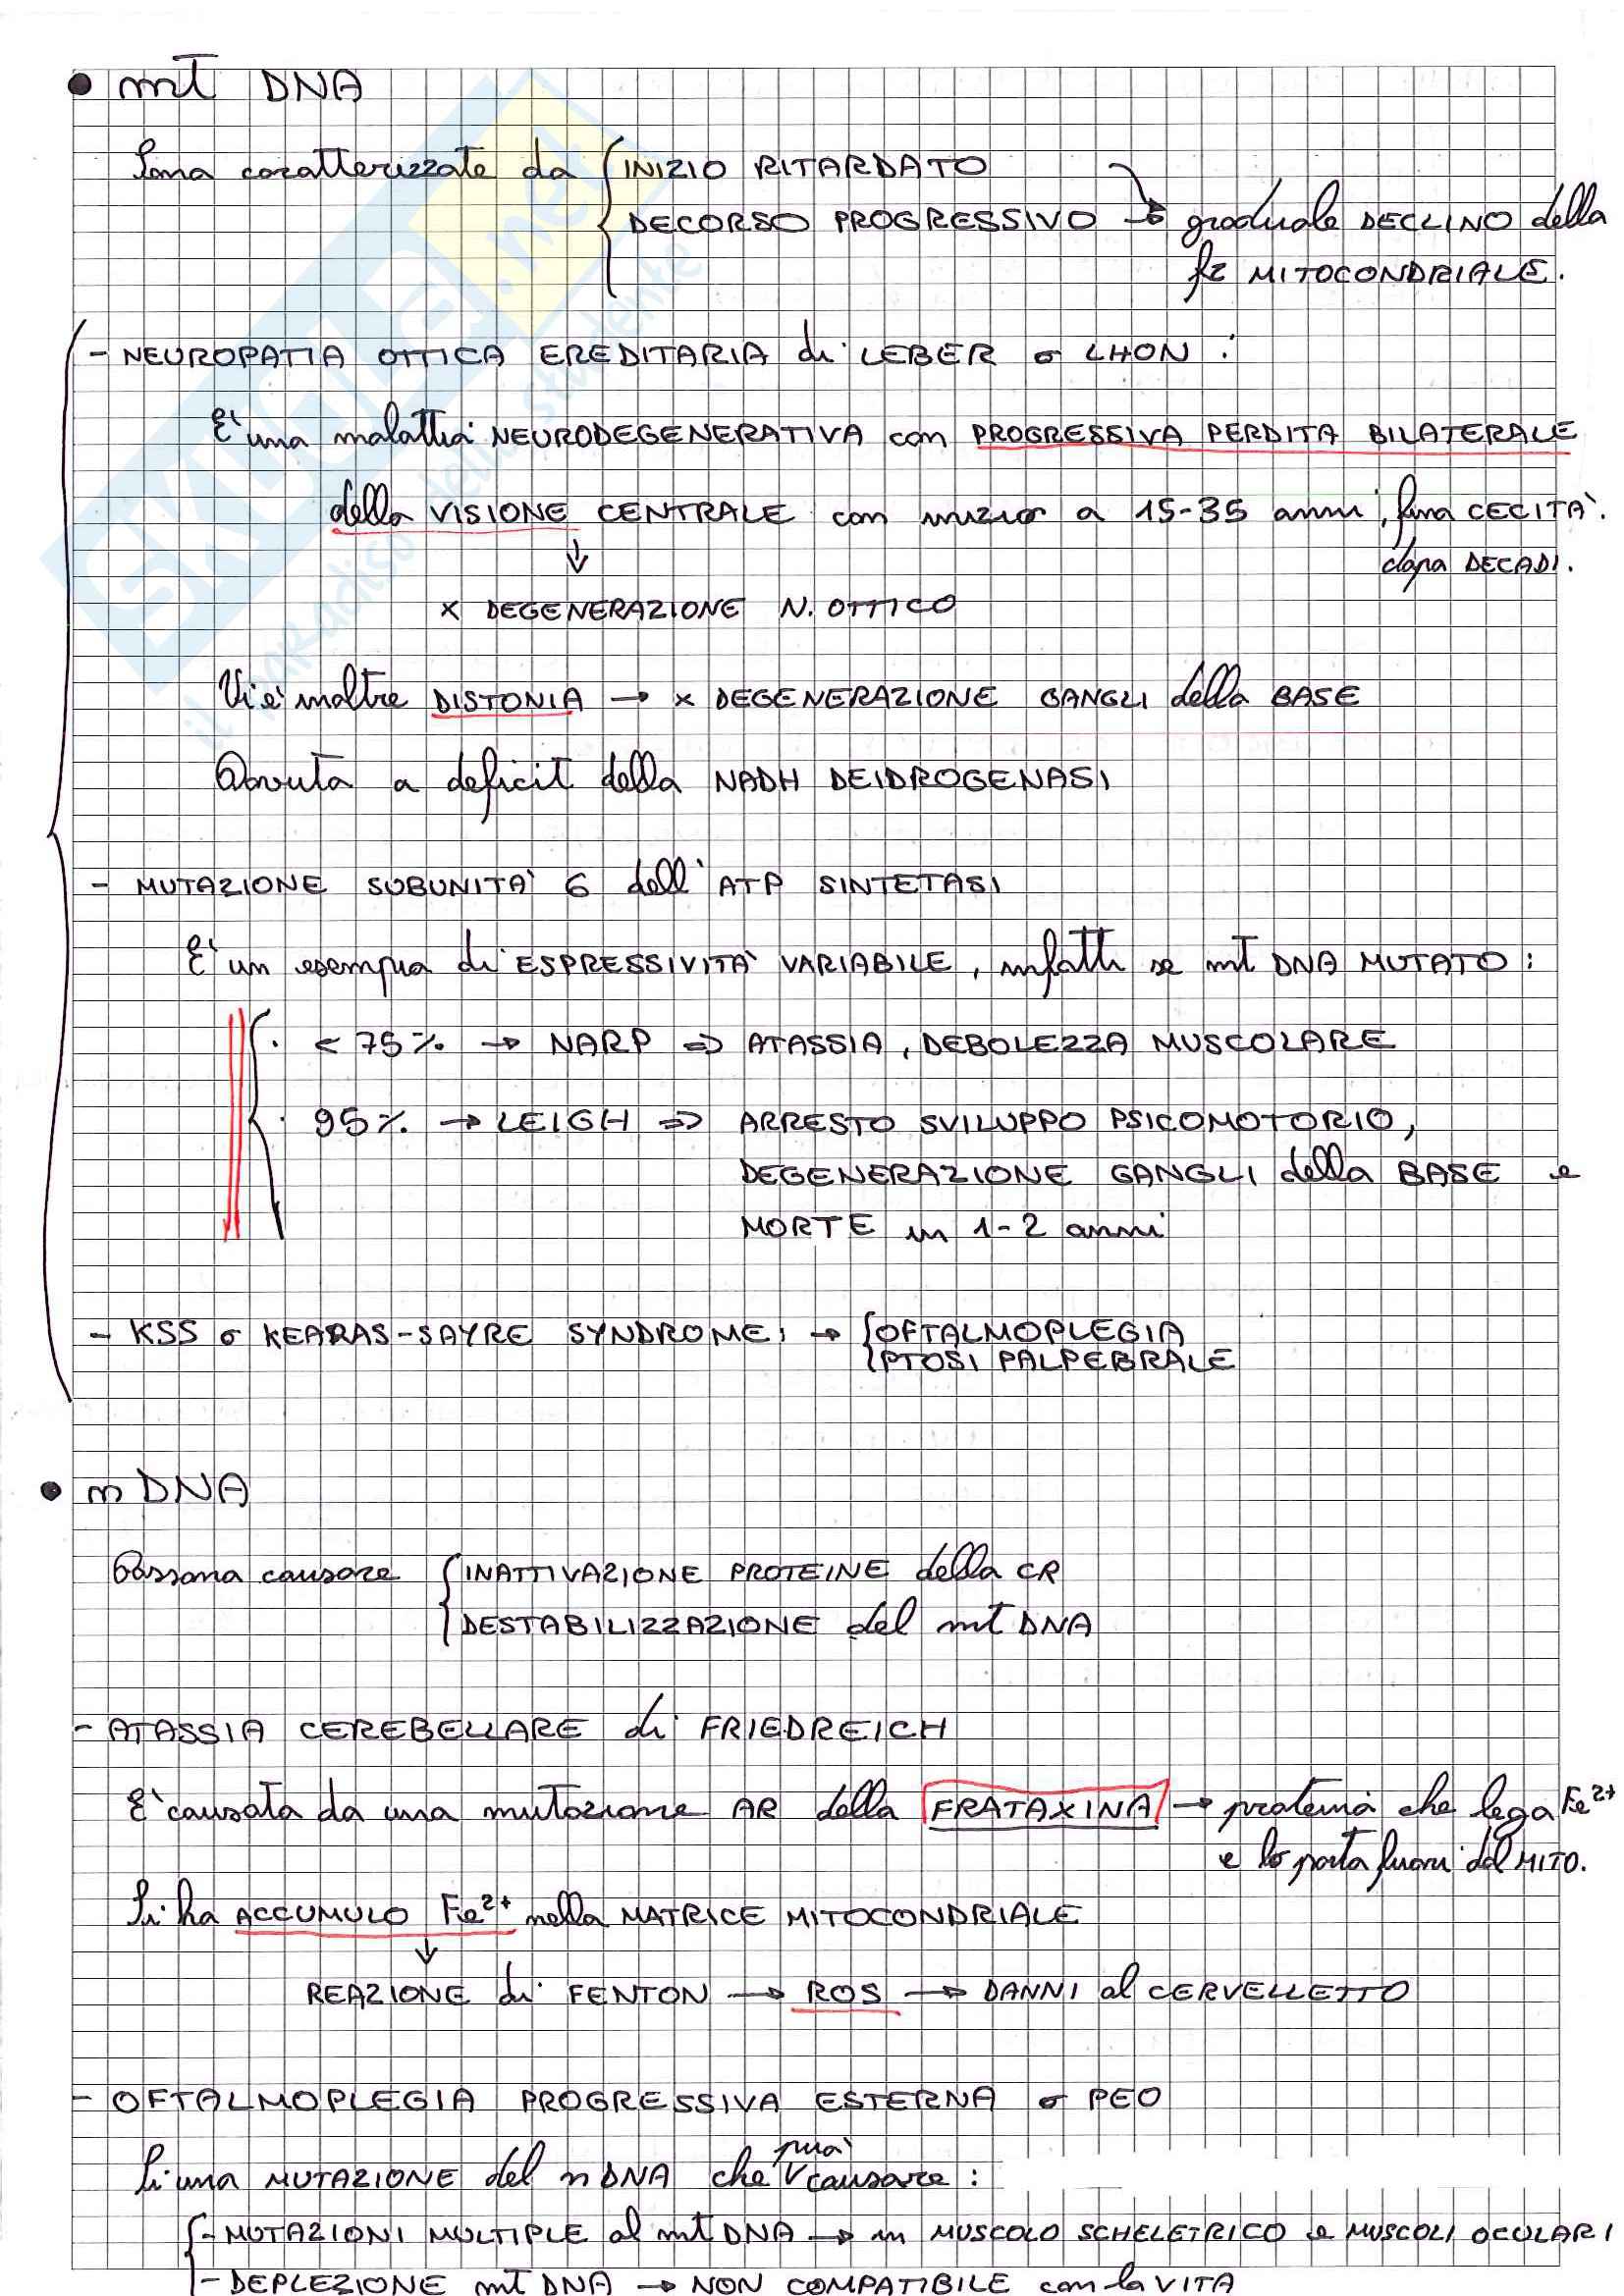 • mt DNA
Sono caratterizzate da { INIZIO RITARDATO
DECORSO PROGRESSIVO → graduale DECLINO della
fz MITOCONDRIALE.
- NEUROPATIA OTTICA EREDITARIA di LEBER o LHON :
E' una malattia NEURODEGENERATIVA con PROGRESSIVA PERDITA BILATERALE
della VISIONE CENTRALE con inizio a 15-35 anni, fino CECITA'.
dopo DECADI.
↓
x DEGENERAZIONE N. OTTICO
Vi è inoltre DISTONIA → x DEGENERAZIONE GANGLI della BASE
Dovuta a deficit della NADH DEIDROGENASI
- MUTAZIONE SUBUNITA' 6 dell'ATP SINTETASI
E' un esempio di ESPRESSIVITA' VARIABILE, infatti se mt DNA MUTATO :
· < 75% → NARP ⇒ ATASSIA, DEBOLEZZA MUSCOLARE
· 95% → LEIGH ⇒ ARRESTO SVILUPPO PSICOMOTORIO,
DEGENERAZIONE GANGLI della BASE e
MORTE in 1-2 anni
- KSS o KEARAS-SAYRE SYNDROME: → { OFTALMOPLEGIA
PTOSI PALPEBRALE
• n DNA
Possono causare { INATTIVAZIONE PROTEINE della CR
DESTABILIZZAZIONE del mt DNA
- ATASSIA CEREBELLARE di FRIEDREICH
E' causata da una mutazione AR della FRATAXINA → proteina che lega Fe2+
e lo porta fuori dal MITO.
Si ha ACCUMULO Fe2+ nella MATRICE MITOCONDRIALE
↓
REAZIONE di FENTON → ROS → DANNI al CERVELLETTO
- OFTALMOPLEGIA PROGRESSIVA ESTERNA o PEO
E' una MUTAZIONE del n DNA che può causare :
- MUTAZIONI MULTIPLE al mt DNA → in MUSCOLO SCHELETRICO e MUSCOLI OCULARI
- DEPLEZIONE mt DNA → NON COMPATIBILE con la VITA
SKUOLA.net
il paradiso dello studente